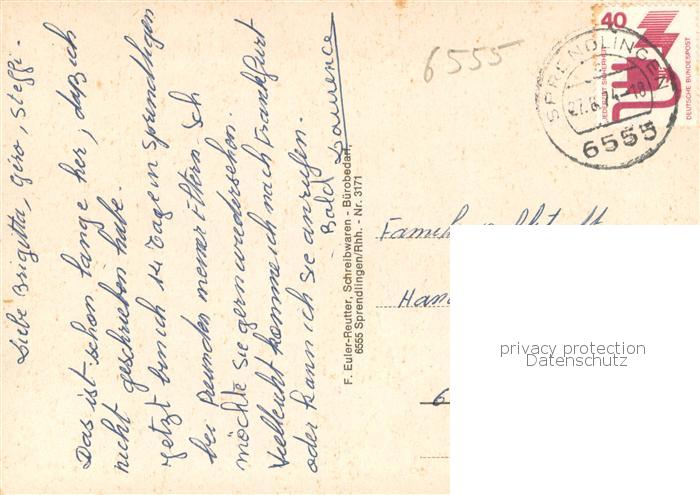 Liebe Brigitta, Gero, Steffi -
Das ist schon lange her, daß ich
nicht geschrieben habe.
Jetzt bin ich 14 Tage in Sprendlingen
bei Freunden meiner Eltern. Ich
möchte Sie gern wiedersehen.
Vielleicht komme ich nach Frankfurt
oder kann ich Sie anrufen.
Bald Laurence
F. Euler-Reutter, Schreibwaren - Bürobedarf,
6555 Sprendlingen/Rhh. - Nr. 3171
6555
40
JEDERZEIT SICHERHEIT
DEUTSCHE BUNDESPOST
SPRENDLINGEN
6555
6
privacy protection
Datenschutz